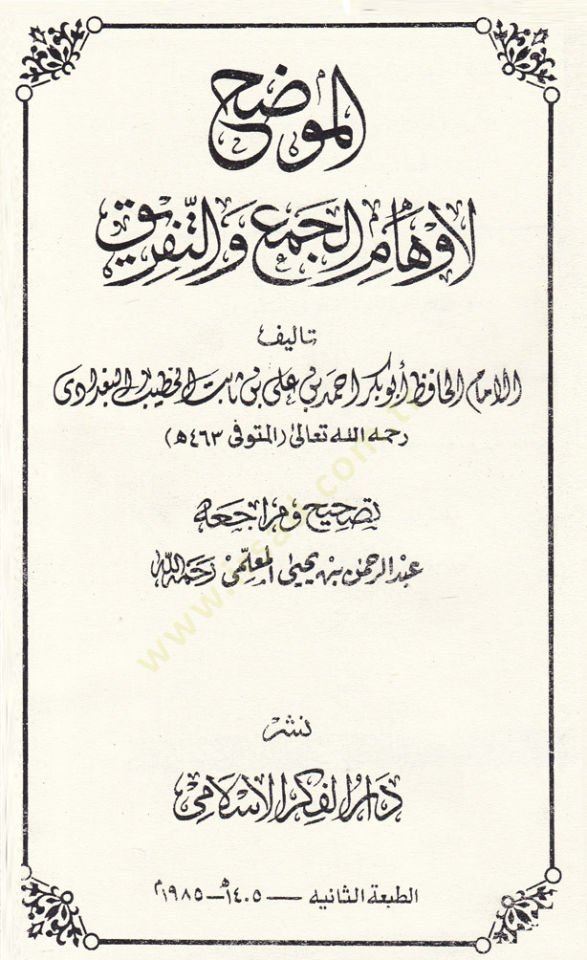 الموضح
لأوهام الجمع والتفريق
تاليف
الامام الحافظ أبوبكر احمد بن علی بن ثابت الخطيب البغدادی
رحمه الله تعالیٰ (المتوفى ٤٦٣ھ)
تصحيح ومراجعه
عبد الرحمن بن يحيیٰ المعلمی رحمه الله
نشر
دار الفكر الاسلامی
الطبعة الثانيه — ١٤٠٥ھ — ١٩٨٥م